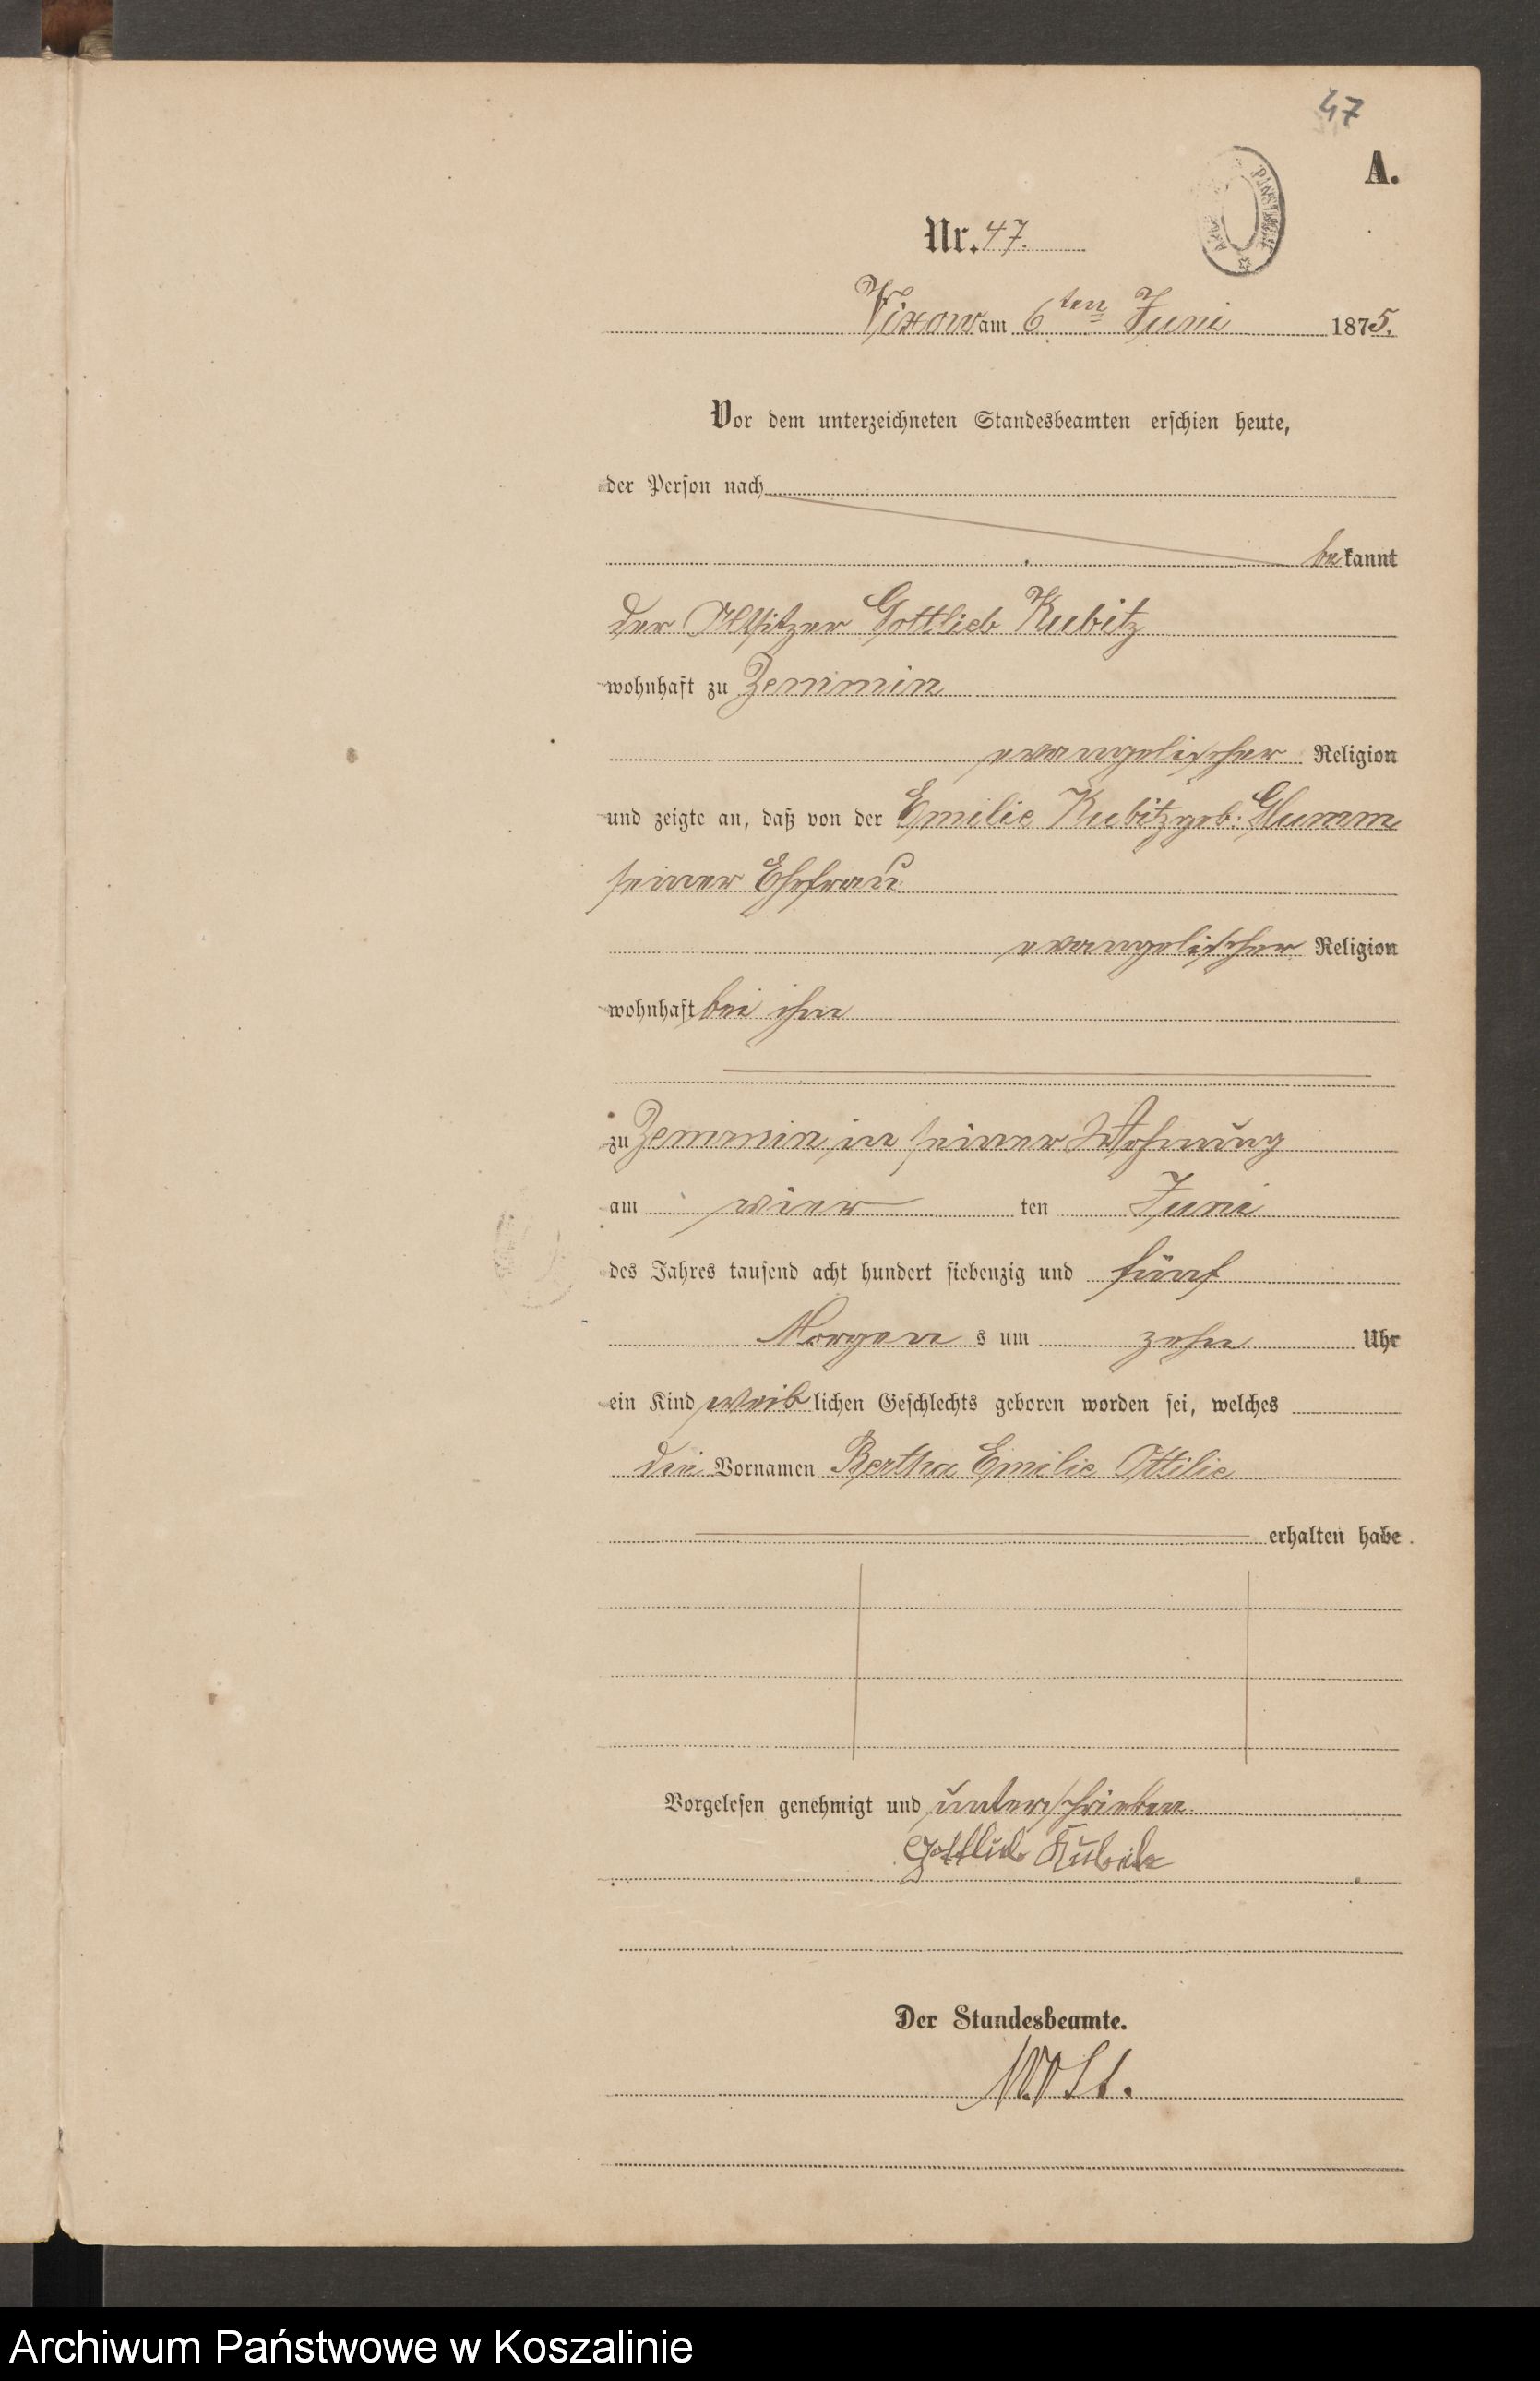 47
A.
Nr. 47.
Vixow am 6ten Juni 1875.
Vor dem unterzeichneten Standesbeamten erschien heute,
der Person nach
bekannt
der Altsitzer Gottlieb Kubitz
wohnhaft zu Zemmin
evangelischer Religion
und zeigte an, daß von der Emilie Kubitz geb. Glumm
seiner Ehefrau
evangelischer Religion
wohnhaft bei ihm
zu Zemmin in seiner Wohnung
am vier ten Juni
des Jahres tausend acht hundert siebenzig und fünf
Morgen s um zehn Uhr
ein Kind weiblichen Geschlechts geboren worden sei, welches
die Vornamen Bertha Emilie Ottilie
erhalten habe.
Vorgelesen genehmigt und unterschrieben.
Gottlieb
Der Standesbeamte.
Archiwum Państwowe w Koszalinie